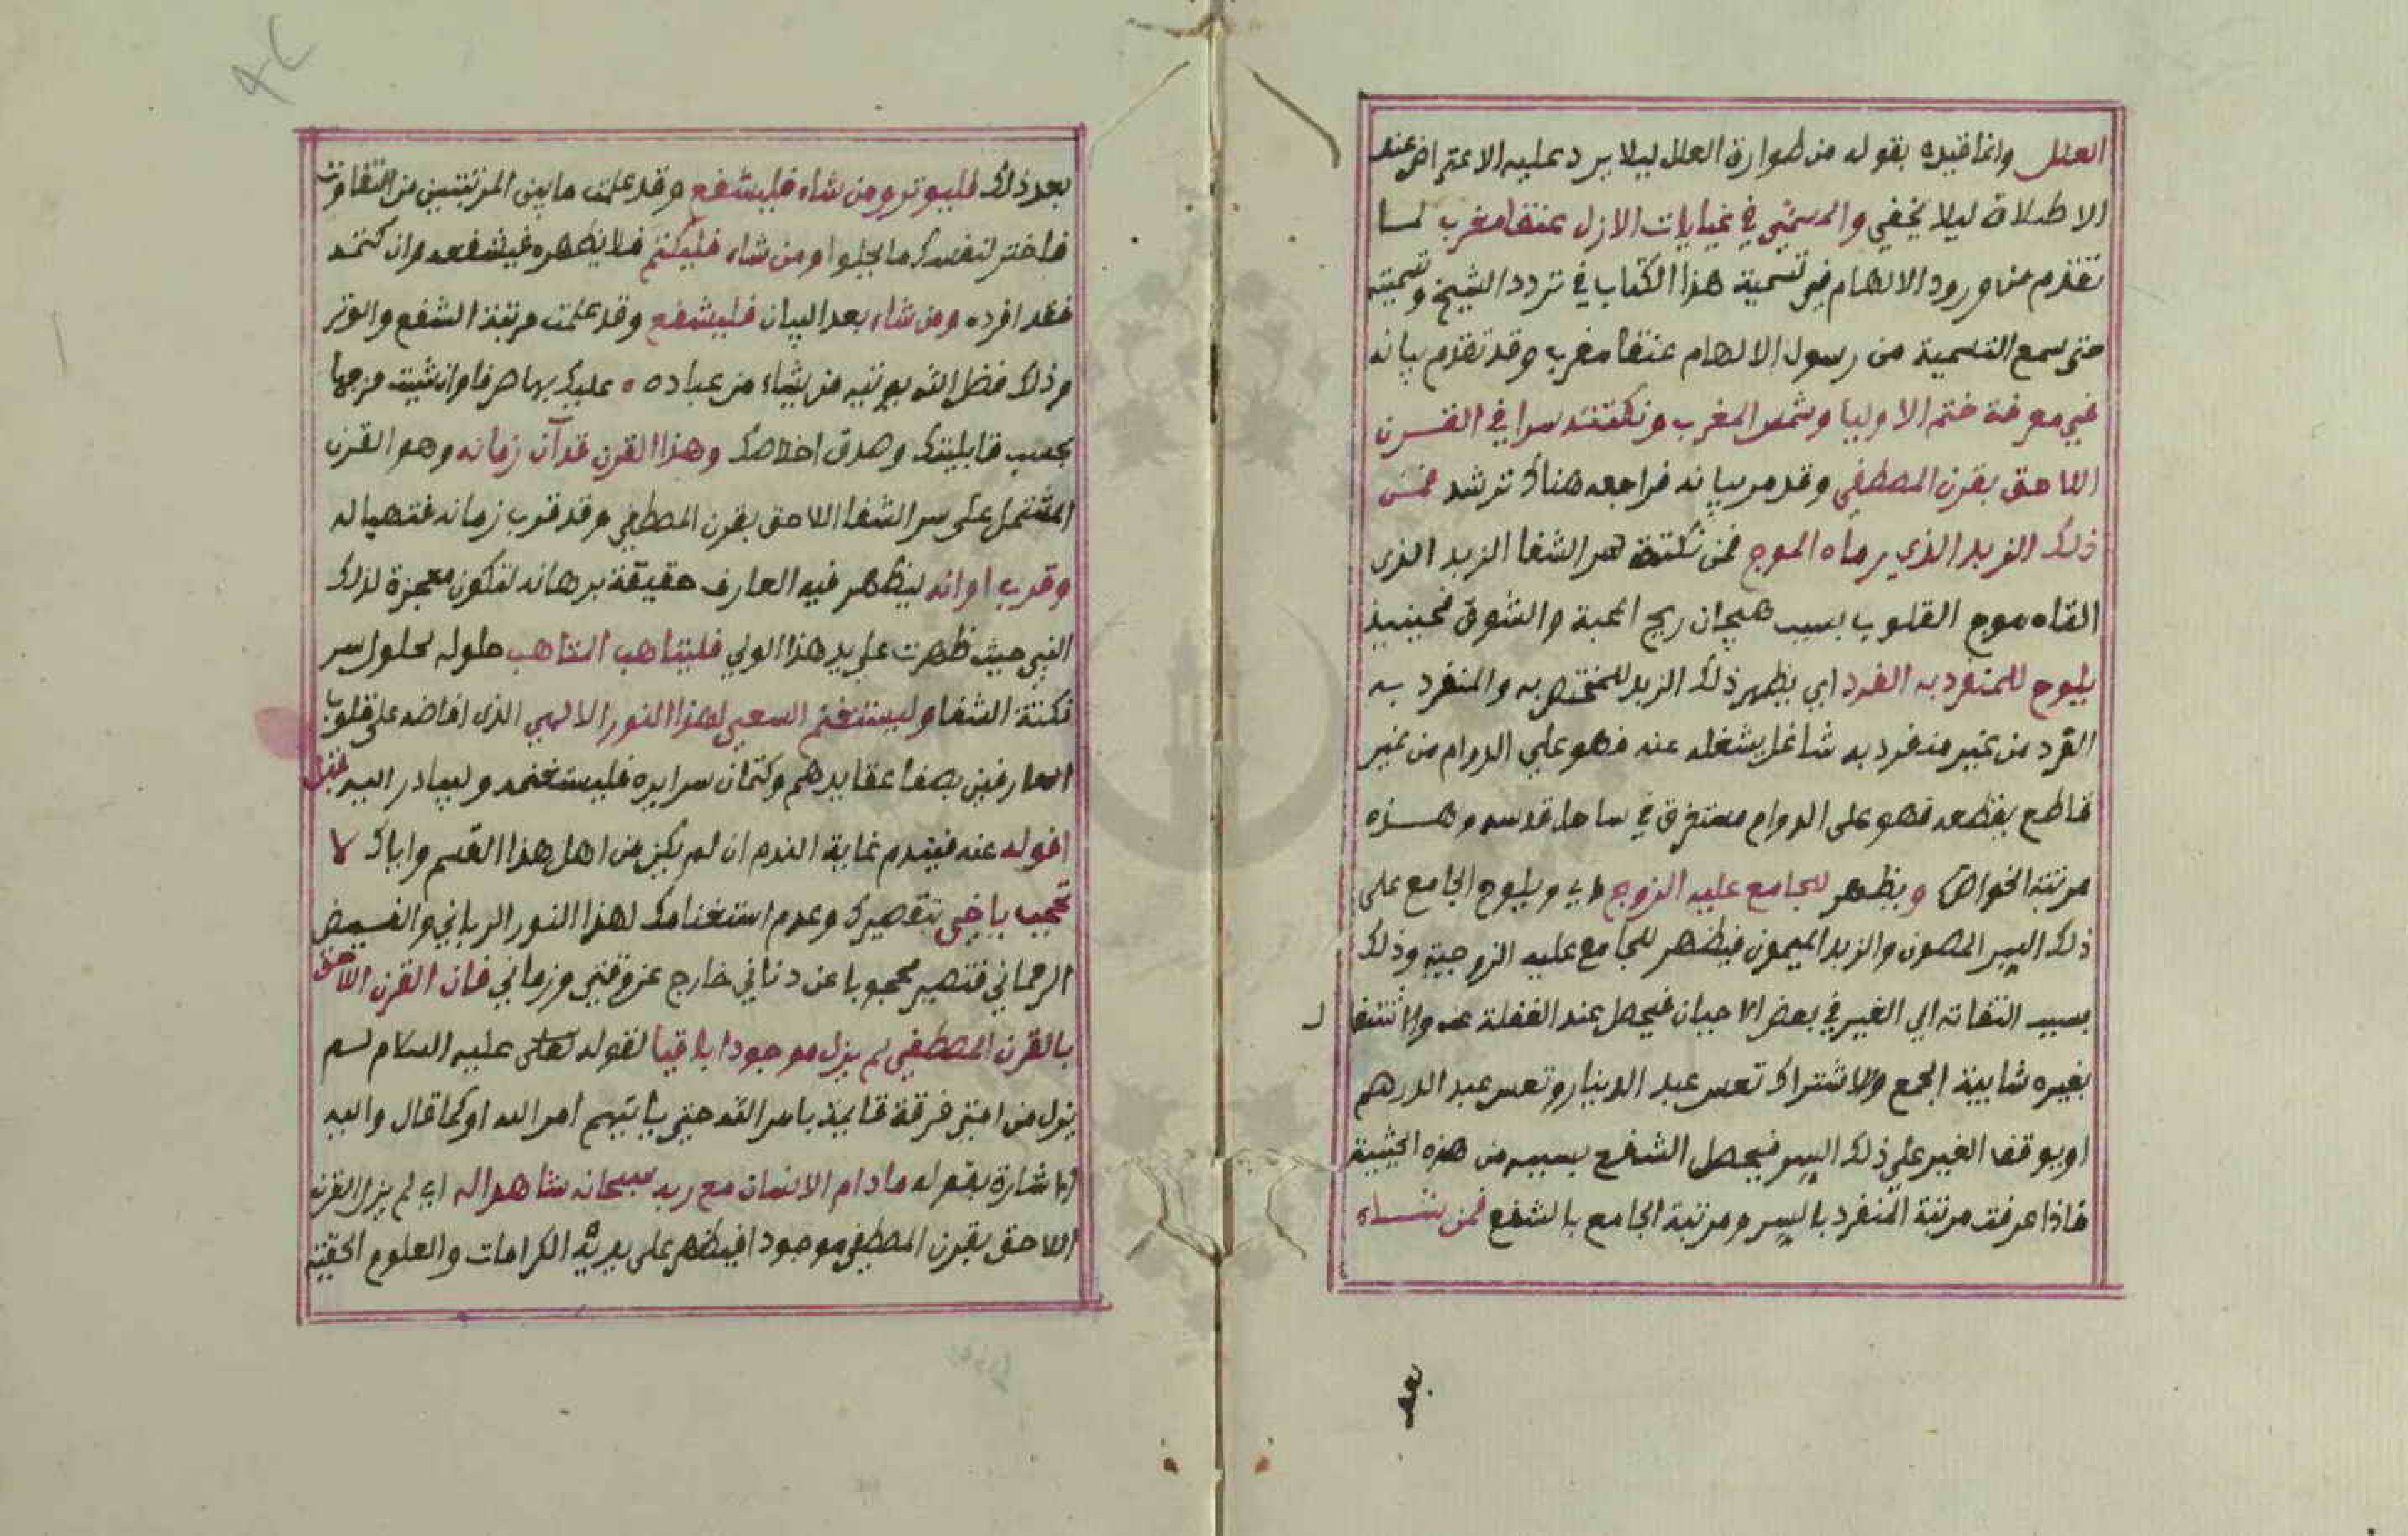 العلل وانما قيده بقوله من طوارق العلل ليلا يرد عليه الاعتراض عند
الاطلاق ليلا يخفي والمسمي في غيابات الازل عنقا مغرب لما
تقدم من ورود الالهام في تسمية هذا الكتاب في تردد الشيخ وتسميته
حتى سمع التسمية من رسول الالهام عنقا مغرب وقد تقدم بيانه
في معرفة ختم الاوليا وشمس المغرب ونكتته سرا في القرن
اللاحق بقرن المصطفي وقد مر بيانه فراجعه هناك ترشد فمن
ذلك الزبد الذي رماه الموج فمن نكتة سر الشفا الزبد الذى
القاه موج القلوب بسبب هيجان ريح المحبة والشوق فحينيذ
يلوح للمنفرد به الفرد اي يظهر ذلك الزبد للمختص به والمنفرد به
الفرد من غير منفرد به شاغل يشغله عنه فهو علي الدوام من غير
قاطع يقطعه فهو على الدوام مستغرق في ساحل قدسه وهذه
مرتبة الخواص ويظهر للجامع عليه الزوج اي ويلوح الجامع على
ذلك السر المصون والزبد الميمون فيظهر للجامع عليه الزوجية وذلك
بسبب التفاته الي الغير في بعض الاحيان فيحصل عند الغفلة عنه والاشتغا ل
بغيره شايبة الجمع والاشتراك تعس عبد الدينار وتعس عبد الدرهم
او يوقف الغير علي ذلك السر فيحصل الشفع بسببه من هذه الحيثية
فاذا عرفت مرتبة المنفرد بالسر ومرتبة الجامع بالشفع فمن شاء
بعد
بعد ذلك فليوتر ومن شاء فليشفع وقد علمت ما بين المرتبتين من التفاوت
فاختر لنفسك ما يحلوا ومن شاء فليكتم فلا يظهره فيشفعه وان كتمه
فقد افرده ومن شاء بعد البيان فليشفع وقد علمت مرتبة الشفع والوتر
وذلك فضل الله يوتيه من يشاء من عباده ۰ عليك بها صرفا وان شيت مزجها
بحسب قابليتك وصدق اخلاصك وهذا القرن قد آن زمانه وهو القرن
المشتمل على سر الشفا اللاحق بقرن المصطفي وقد قرب زمانه فتهيا له
وقرب اوانه ليظهر فيه العارف حقيقة برهانه لتكون معجزة لذلك
النبي حيث ظهرت علي يد هذا الولي فليتاهب المتاهب حلوله لحلول سر
نكتة الشفا وليستغنم السعي لهذا النور الالهي الذى افاضه على قلوب
العارفين بصفا عقايدهم وكتمان سرايره فليستغنمه وليبادر اليه قبل
افوله عنه فيندم غاية الندم ان لم يكن من اهل هذا القسم واياك لا
تحجب ياخي بتقصيرك وعدم استغنامك لهذا النور الرباني والفيض
الرحماني فتصير محجوبا عن دناني خارج عن وقتي وزماني فان القرن اللاحق
بالقرن المصطفي لم يزل موجودا باقيا لقوله تعالى عليه السلام لم
يزل من امتي فرقة قايمة بامر الله حتي ياتيهم امر الله اوكما قال واليه
الاشارة بقوله مادام الانسان مع ربه سبحانه شاهدا له اي لم يزل القرن
اللاحق بقرن المصطفي موجودا فيظهر على يديه الكرامات والعلوم الحقية